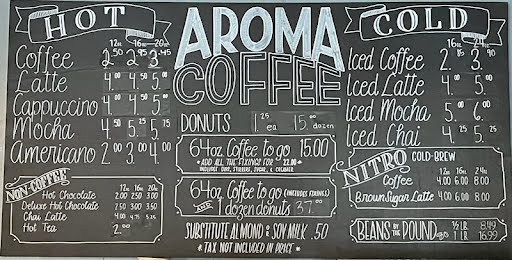 HOT
12oz 16oz 20oz
Coffee 2.50 2.95 3.45
Latte 4.00 4.50 5.00
Cappuccino 4.00 4.50 5.00
Mocha 4.50 5.25 5.75
Americano 2.00 3.00 4.00
NON-COFFEE
12oz 16oz 20oz
Hot Chocolate 2.00 2.50 3.00
Deluxe Hot Chocolate 2.50 3.00 3.50
Chai Latte 4.00 4.75 5.25
Hot Tea 2.00
AROMA
COFFEE
DONUTS 1.25 ea 15.00 dozen
64oz Coffee to go 15.00
* ADD ALL THE FIXINGS FOR $2.00 *
INCLUDES CUPS, STIRRERS, SUGAR, & CREAMER
64oz Coffee to go (INCLUDES FIXINGS)
AND 1 dozen donuts 37.00
SUBSTITUTE ALMOND & SOY MILK .50
* TAX NOT INCLUDED IN PRICE *
COLD
16oz 24oz
Iced Coffee 2.85 3.90
Iced Latte 4. 5.
Iced Mocha 5.00 6.00
Iced Chai 4.75 5.25
NITRO COLD-BREW
12oz 16oz 24oz
Coffee 4.00 6.00 8.00
Brown Sugar Latte 4.00 6.00 8.00
BEANS BY THE POUND 1/2 LB. 8.49
1 LB. 16.99